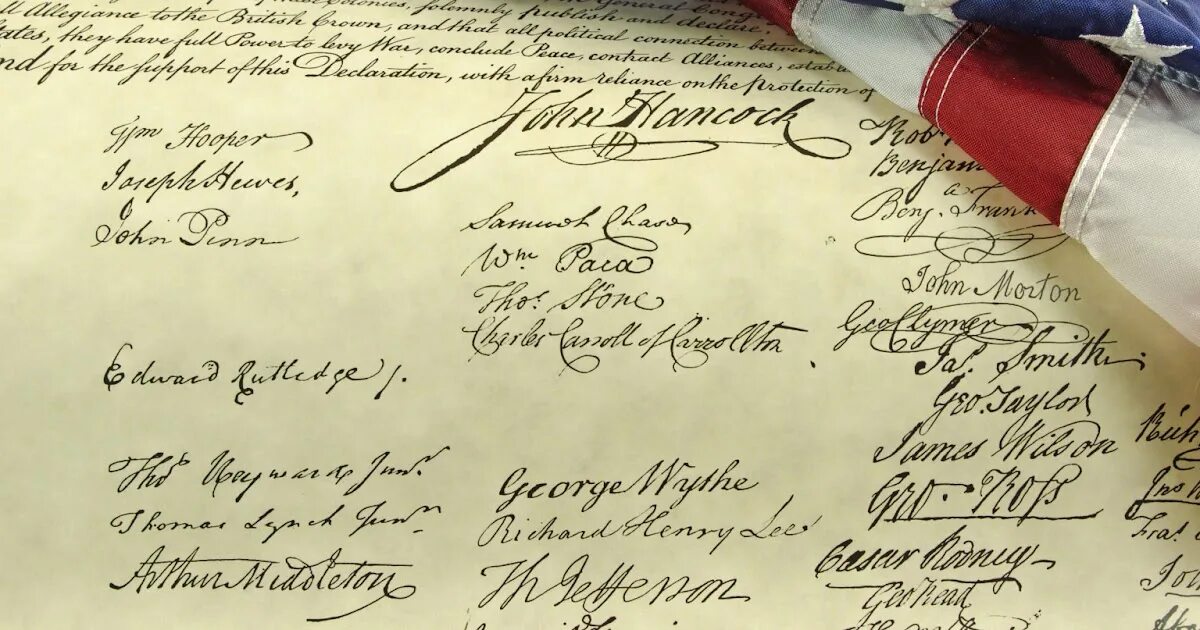 ll Allegiance to the British Crown, and that all political connection between
ates, they have full Power to levy War, conclude Peace, contract Alliances, estab
nd for the support of this Declaration, with a firm reliance on the Protection of
John Hancock
Wm Hooper
Joseph Hewes,
John Penn
Edward Rutledge /.
Thos Heyward Junr.
Thomas Lynch Junr.
Arthur Middleton
Samuel Chase
Wm. Paca
Thos. Stone
Charles Carroll of Carrollton
George Wythe
Richard Henry Lee
Th Jefferson
Rob
Benjam
Benj. Frank
John Morton
Geo Clymer
Jas. Smith.
Geo. Taylor
James Wilson
Geo. Ross
Caesar Rodney
Geo Read